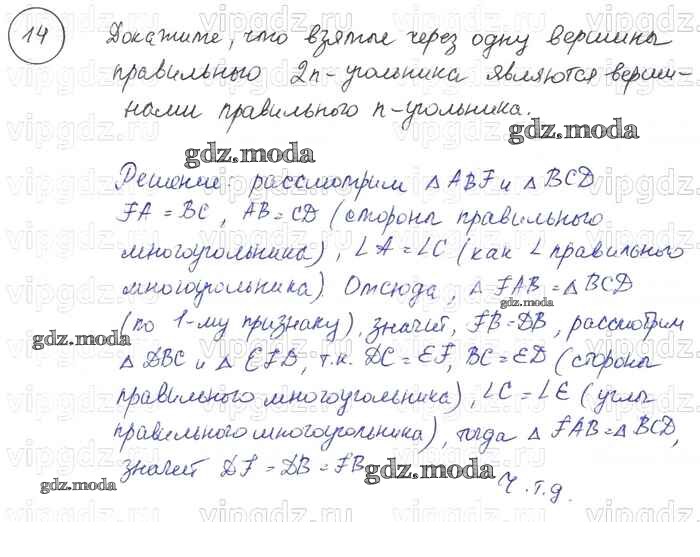 14 Докажите, что взятые через одну вершины
правильного 2n-угольника являются верши-
нами правильного n-угольника.
gdz.moda
Решение: рассмотрим △ABF и △BCD
FA = BC, AB = CD (стороны правильного
многоугольника), ∠A = ∠C (как ∠ правильного
многоугольника). Отсюда, △FAB = △BCD
gdz.moda
(по 1-му признаку), значит, FB = DB, рассмотрим
gdz.moda
△DBC и △EFD, т.к. DC = EF, BC = ED (стороны
правильного многоугольника), ∠C = ∠E (углы
правильного многоугольника), тогда △FAB = △BCD,
значит DF = DB = FB
gdz.moda
gdz.moda
Ч.т.д.